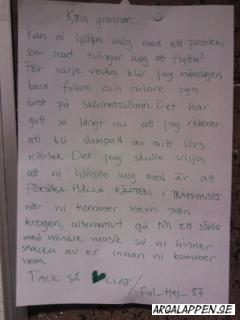 Kära grannar.
Kan ni hjälpa mig med ett problem,
som snart tvingar mig att flytta?
För varje vecka blir jag nämligen
bara fulare och fulare pga
brist på skönhetssömn. Det har
gått så långt nu att jag riskerar
att bli dumpad av mitt livs
kärlek. Det jag skulle vilja
att ni hjälpte mig med är att
FÖRSÖKA HÅLLA KÄFTEN I TRAPPHUSET
när ni kommer hem från
krogen, alternativt gå till ett ställe
med mindre musik så ni hinner
snacka av er innan ni kommer
hem.
TACK SÅ LIGT
/Ful_tjej_87
ARGALAPPEN.SE